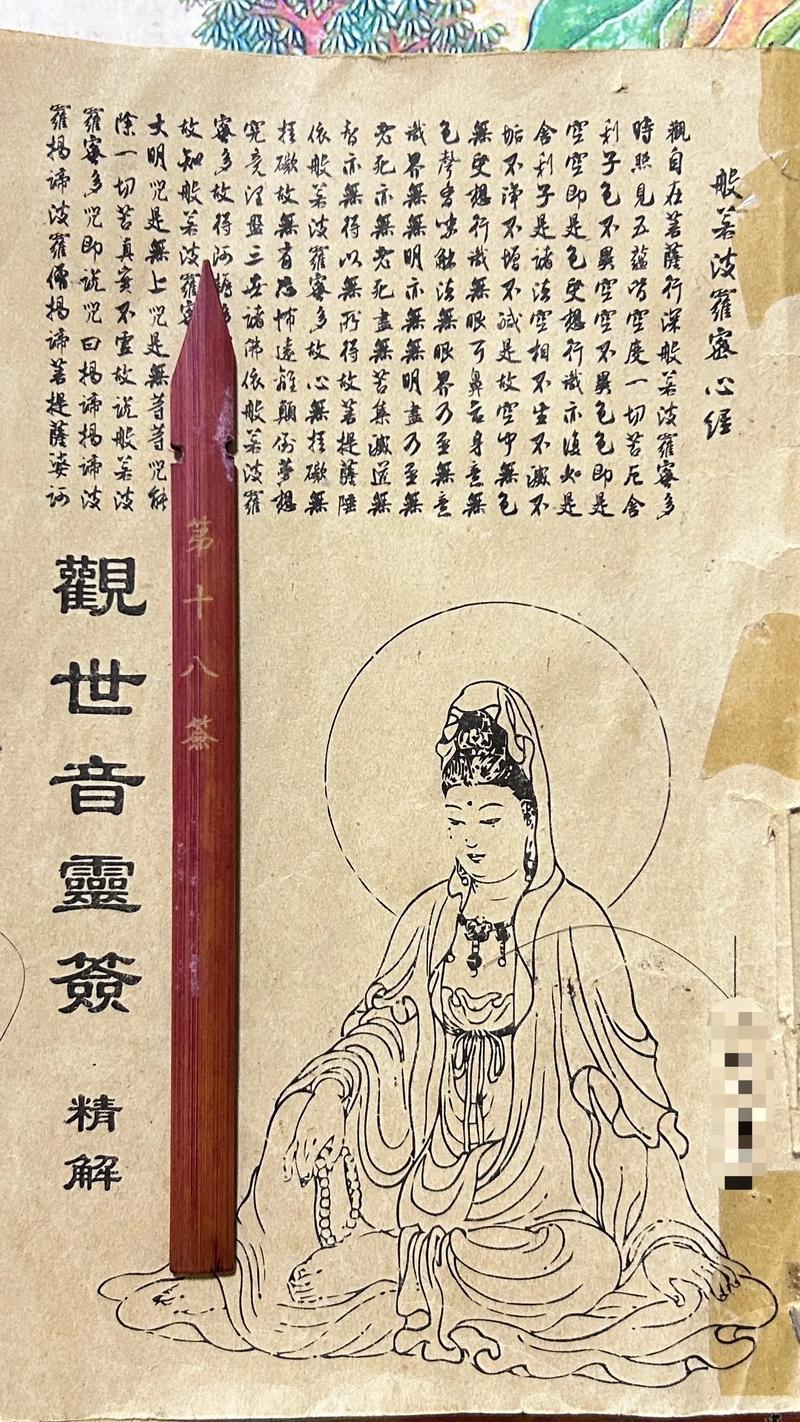 般若波羅密心經
觀自在菩薩行深般若波羅密多
時照見五蘊皆空度一切苦厄舍
利子色不異空空不異色色即是
空空即是色受想行識亦復如是
舍利子是諸法空相不生不滅不
垢不淨不增不減是故空中無色
無受想行識無眼耳鼻舌身意無
色聲香味觸法無眼界乃至無意
識界無無明亦無無明盡乃至無
老死亦無老死盡無苦集滅道無
智亦無得以無所得故菩提薩陲
依般若波羅密多故心無挂礙無
挂礙故無有恐怖遠離顛倒夢想
究竟涅盤三世諸佛依般若波羅
密多故得阿耨多
故知般若波羅密
大明咒是無上咒是無等等咒能
除一切苦真實不虛故說般若波
羅密多咒即說咒曰揭諦揭諦波
羅揭諦波羅僧揭諦菩提薩婆訶
第十八簽
觀世音靈簽
精解